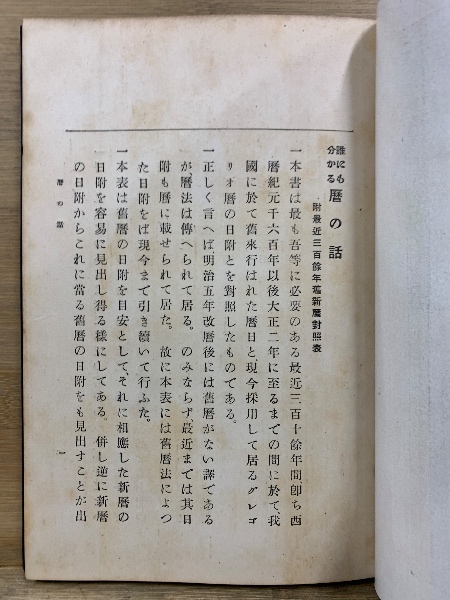 誰にも
分かる 暦の話
附最近三百餘年舊新暦對照表
一本書は最も吾等に必要のある最近三百十餘年間卽ち西
暦紀元千六百年以後大正二年に至るまでの間に於て我
國に於て舊來行はれた暦日と、現今採用して居るグレゴ
リオ暦の日附とを對照したものである。
一正しく言へば、明治五年改暦後には舊暦がない譯である
が、暦法は傳へられて居る。のみならず、最近までは其日
附も暦に載せられて居た。故に本表には舊暦法によつ
た日附をば現今まで引き續いて行ふた。
一本表は舊暦の日附を目安として、それに相應した新暦の
日附を容易に見出し得る樣にしてある。併し逆に新暦
の日附からこれに當る舊暦の日附をも見出すことが出
暦の話
一